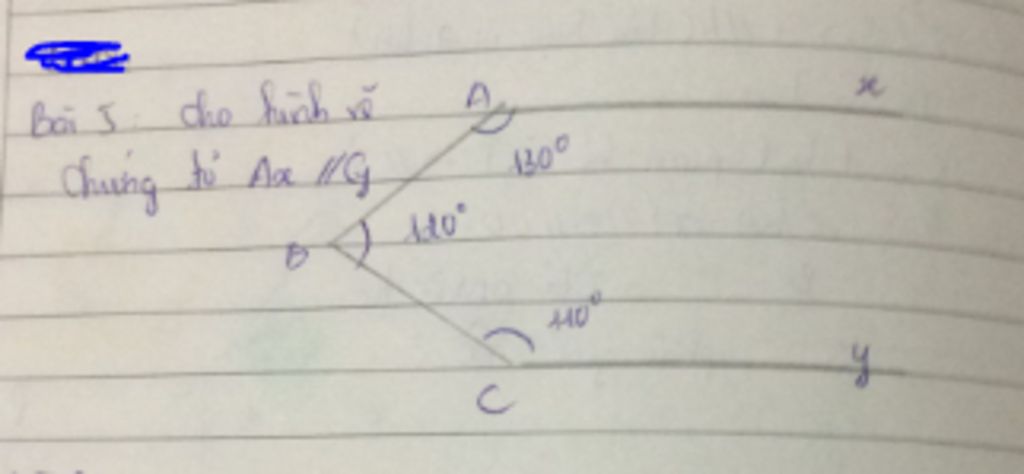 Bài 5: Cho hình vẽ
Chứng tỏ Ax // Cy
A
x
130°
B
110°
C
y